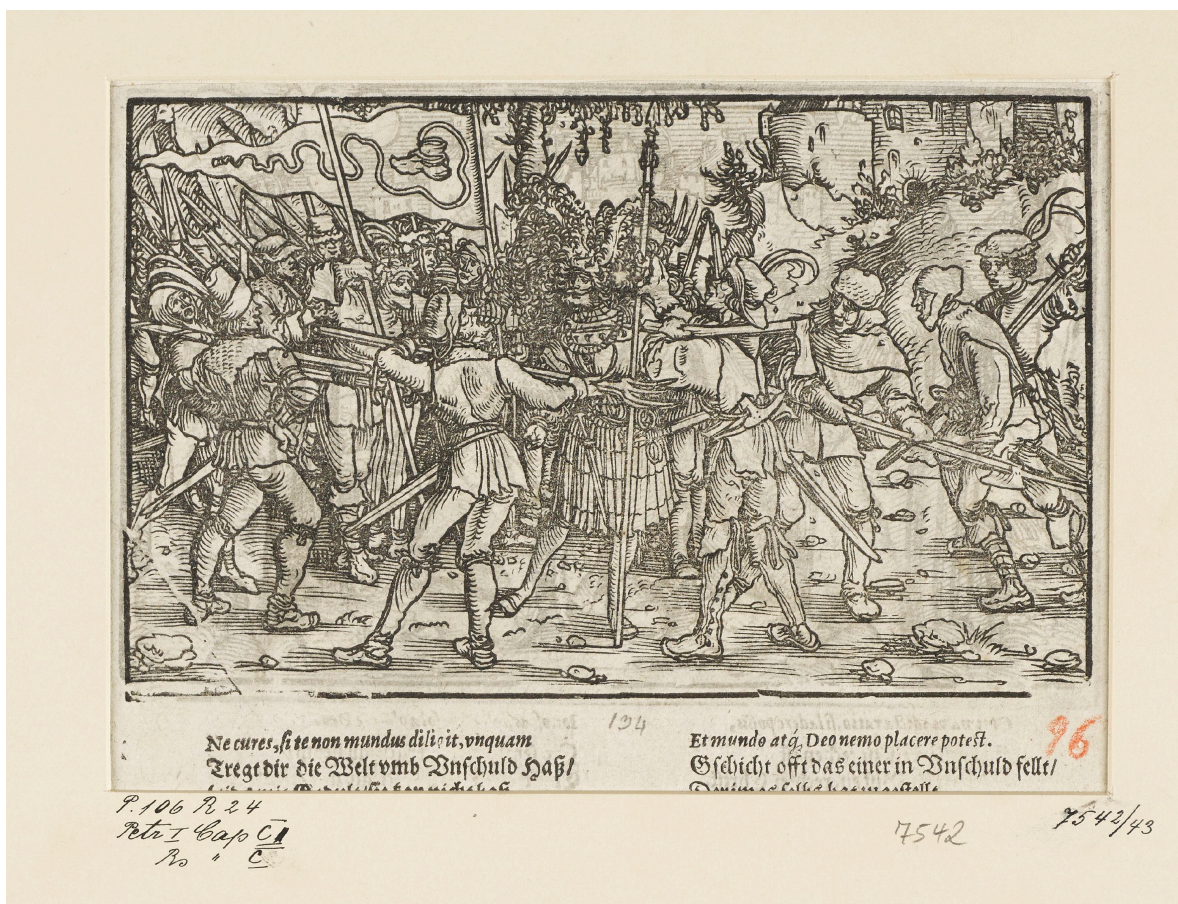 134
96
Ne cures, si te non mundus diligit, vnquam
Tregt dir die Welt vmb Vnschuld Haß/
Et mundo atq́, Deo nemo placere potest.
Gschicht offt das einer in Vnschuld fellt/
P. 106 R 24
Petr I Cap CII
Rs " C
7542
7542/43